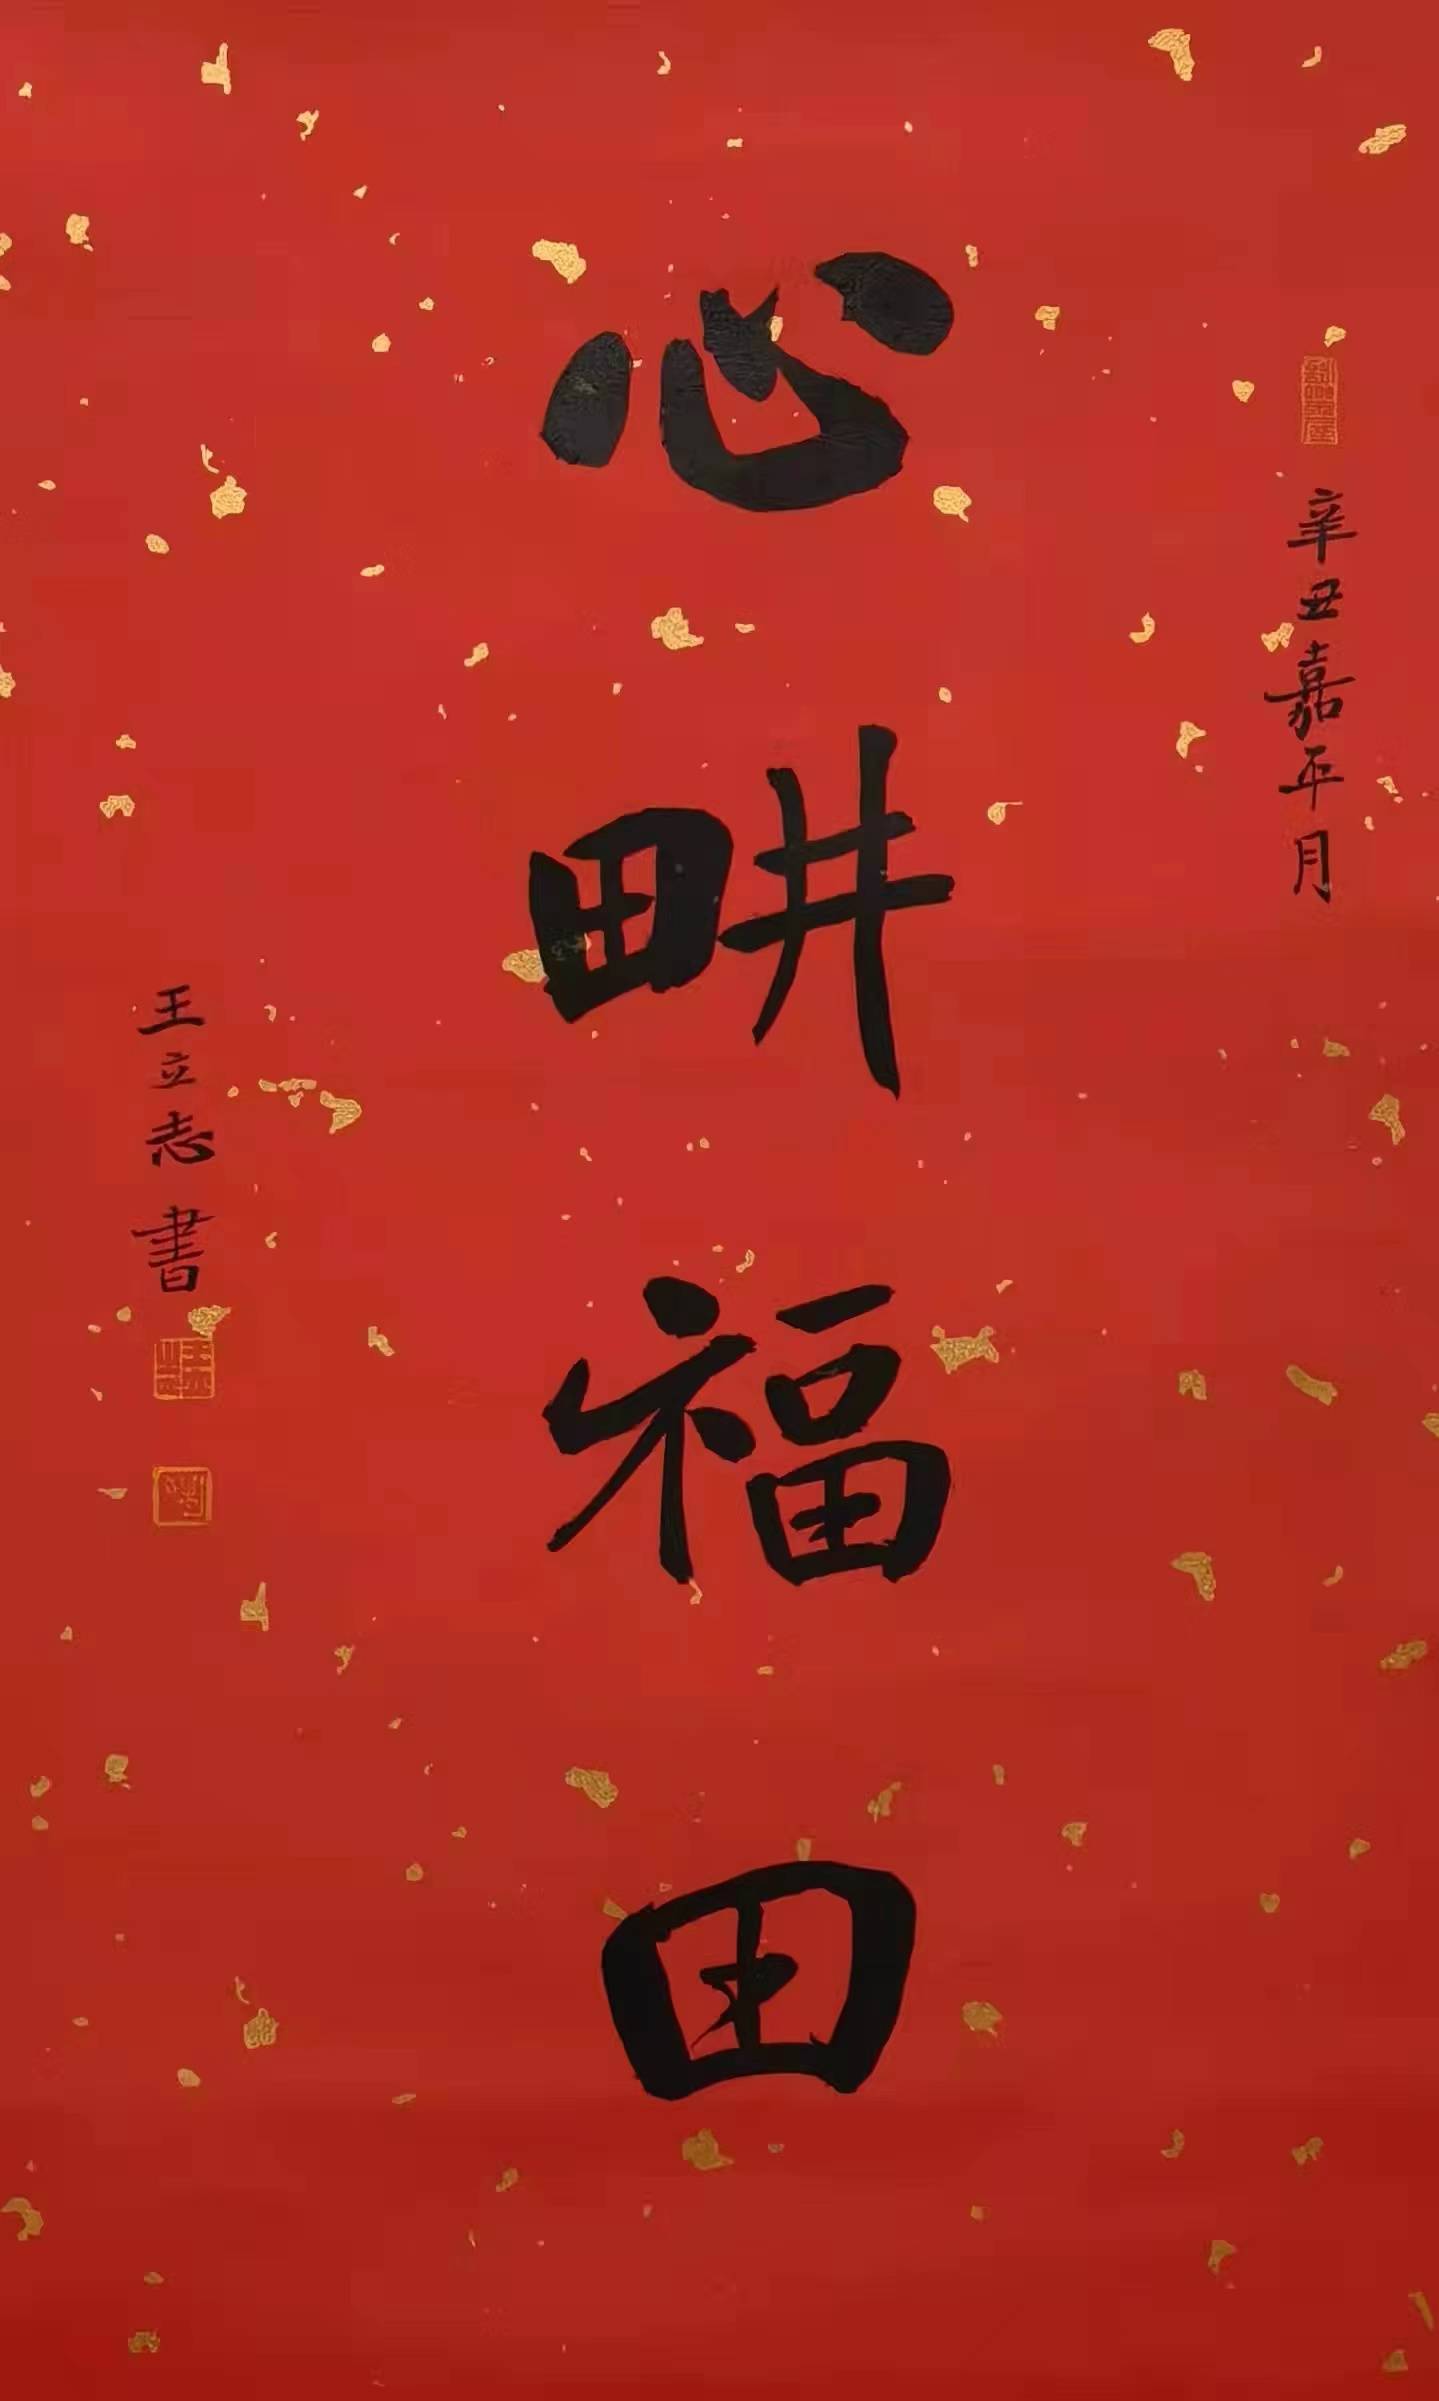 辛丑嘉平月
心畊福田
王立志書